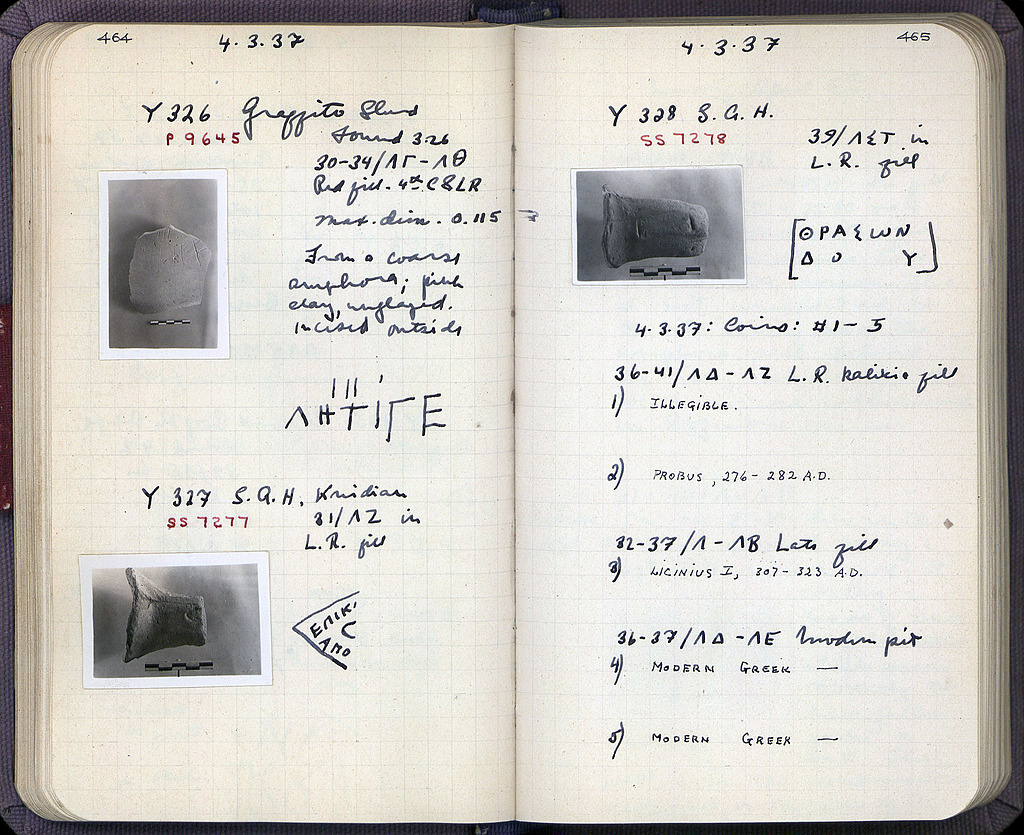 464
4·3·37
Y 326 Graffito Sherd
P 9645
Found 3·26
30-34/ΛΓ-ΛΘ
Red fill. 4th C & LR
max. dim. 0.115
From a coarse
amphora; pink
clay, unglazed.
Incised outside
ΛΗΤΙΓΕ
Y 327 S.A.H. Knidian
SS 7277
31/ΛΖ in
L.R. fill
ΕΠΙΚ
C
ΑΠΟ
465
4·3·37
Y 328 S.A.H.
SS 7278
39/ΛΣΤ in
L.R. fill
[ΘΡΑΣΩΝ
Δ Ο Υ]
4·3·37: Coins: #1-5
36-41/ΛΔ-ΛΖ L.R. fill
1) ILLEGIBLE.
2) PROBUS, 276-282 A.D.
32-37/Λ-ΛΒ Late fill
3) LICINIUS I, 307-323 A.D.
36-37/ΛΔ-ΛΕ Modern pit
4) MODERN GREEK —
5) MODERN GREEK —